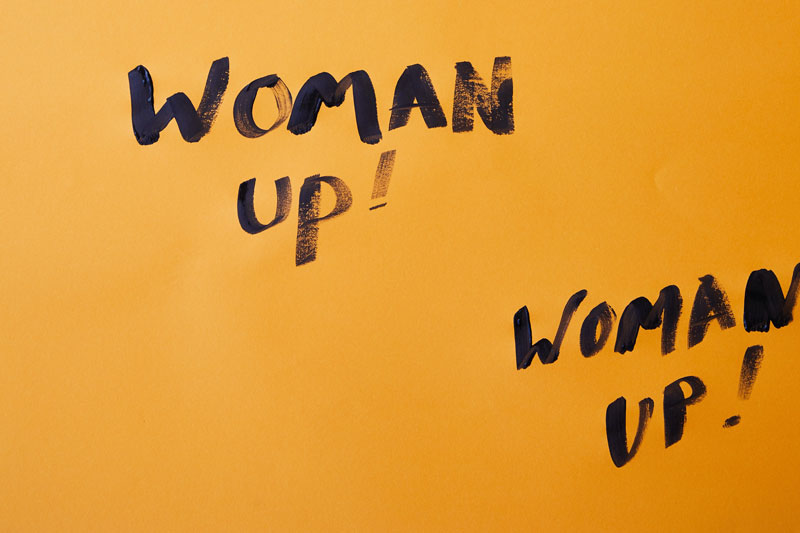 WOMAN
UP!
WOMAN
UP!